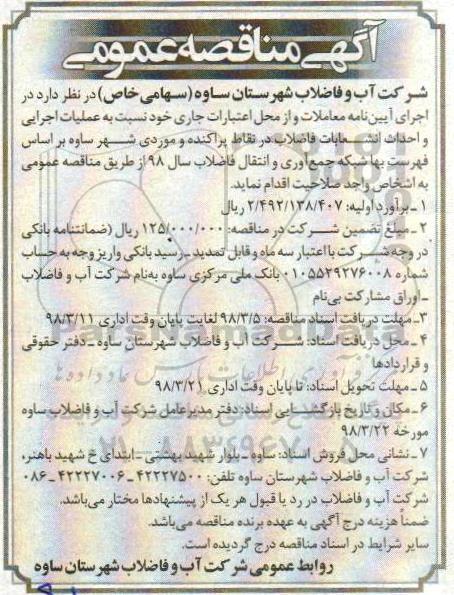 آگهی مناقصه عمومی
شرکت آب و فاضلاب شهرستان ساوه (سهامی خاص) در نظر دارد در
اجرای آیین‌نامه معاملات و از محل اعتبارات جاری خود نسبت به عملیات اجرایی
و احداث انشعابات فاضلاب در نقاط پراکنده و موردی شهر ساوه بر اساس
فهرست بها شبکه جمع‌آوری و انتقال فاضلاب سال ۹۸ از طریق مناقصه عمومی
به اشخاص واجد صلاحیت اقدام نماید.
۱ـ برآورد اولیه: ۲/۴۹۲/۱۳۸/۴۰۷ ریال
۲ـ مبلغ تضمین شرکت در مناقصه: ۱۲۵/۰۰۰/۰۰۰ ریال (ضمانتنامه بانکی
در وجه شرکت با اعتبار سه ماه و قابل تمدید ـ رسید بانکی واریز وجه به حساب
شماره ۰۱۰۵۵۲۹۲۷۶۰۰۸ بانک ملی مرکزی ساوه به‌نام شرکت آب و فاضلاب
ـ اوراق مشارکت بی‌نام
۳ـ مهلت دریافت اسناد مناقصه: ۹۸/۳/۵ لغایت پایان وقت اداری ۹۸/۳/۱۱
۴ـ محل دریافت اسناد: شرکت آب و فاضلاب شهرستان ساوه ـ دفتر حقوقی
و قراردادها
۵ـ مهلت تحویل اسناد: تا پایان وقت اداری ۹۸/۳/۲۱
۶ـ مکان و تاریخ بازگشایی اسناد: دفتر مدیرعامل شرکت آب و فاضلاب ساوه
مورخه ۹۸/۳/۲۲
۷ـ نشانی محل فروش اسناد: ساوه ـ بلوار شهید بهشتی ـ ابتدای خ شهید باهنر،
شرکت آب و فاضلاب شهرستان ساوه تلفن: ۴۲۲۲۷۵۰۰ ـ ۴۲۲۲۷۰۰۶ ـ ۰۸۶
شرکت آب و فاضلاب در رد یا قبول هر یک از پیشنهادها مختار می‌باشد.
ضمناً هزینه درج آگهی به عهده برنده مناقصه می‌باشد.
سایر شرایط در اسناد مناقصه درج گردیده است.
روابط عمومی شرکت آب و فاضلاب شهرستان ساوه